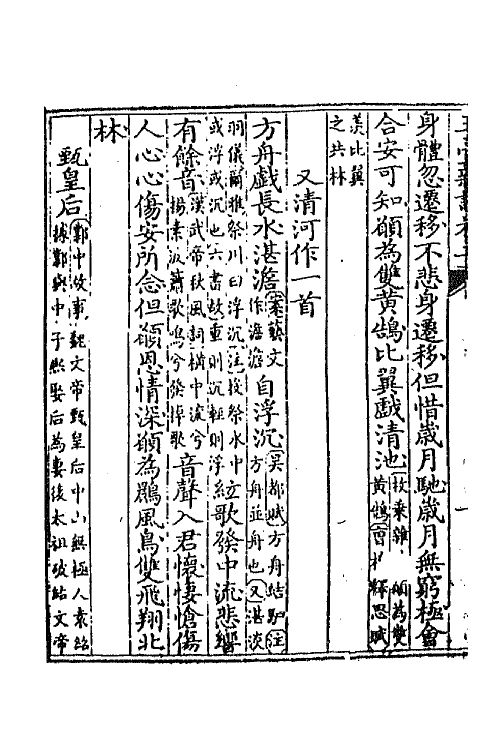 身體忽遷移不悲身遷移但惜歲月馳歲月無窮極會
合安可知願為雙黃鵠比翼戲清池枚乗雜 願為雙黃鵠曹 釋思賦
羨比翼之共林
又清河作一首
方舟戲長水湛澹案藝文作澹澹自浮沉吳都賦方舟結駟注方舟並舟也又湛淡
羽儀爾雅祭川曰浮沉注投祭水中或浮或沉也六書故重則沉輕則浮絃歌發中流悲響
有餘音漢武帝秋風詞橫中流兮揚素波簫歌鳴兮發棹歌音聲入君懷悽愴傷
人心心傷安所念但願恩情深願為鷐風鳥雙飛翔北
林
甄皇后鄴中故事魏文帝甄皇后中山無極人袁紹據鄴與中子熙娶后為妻後太祖破紹文帝